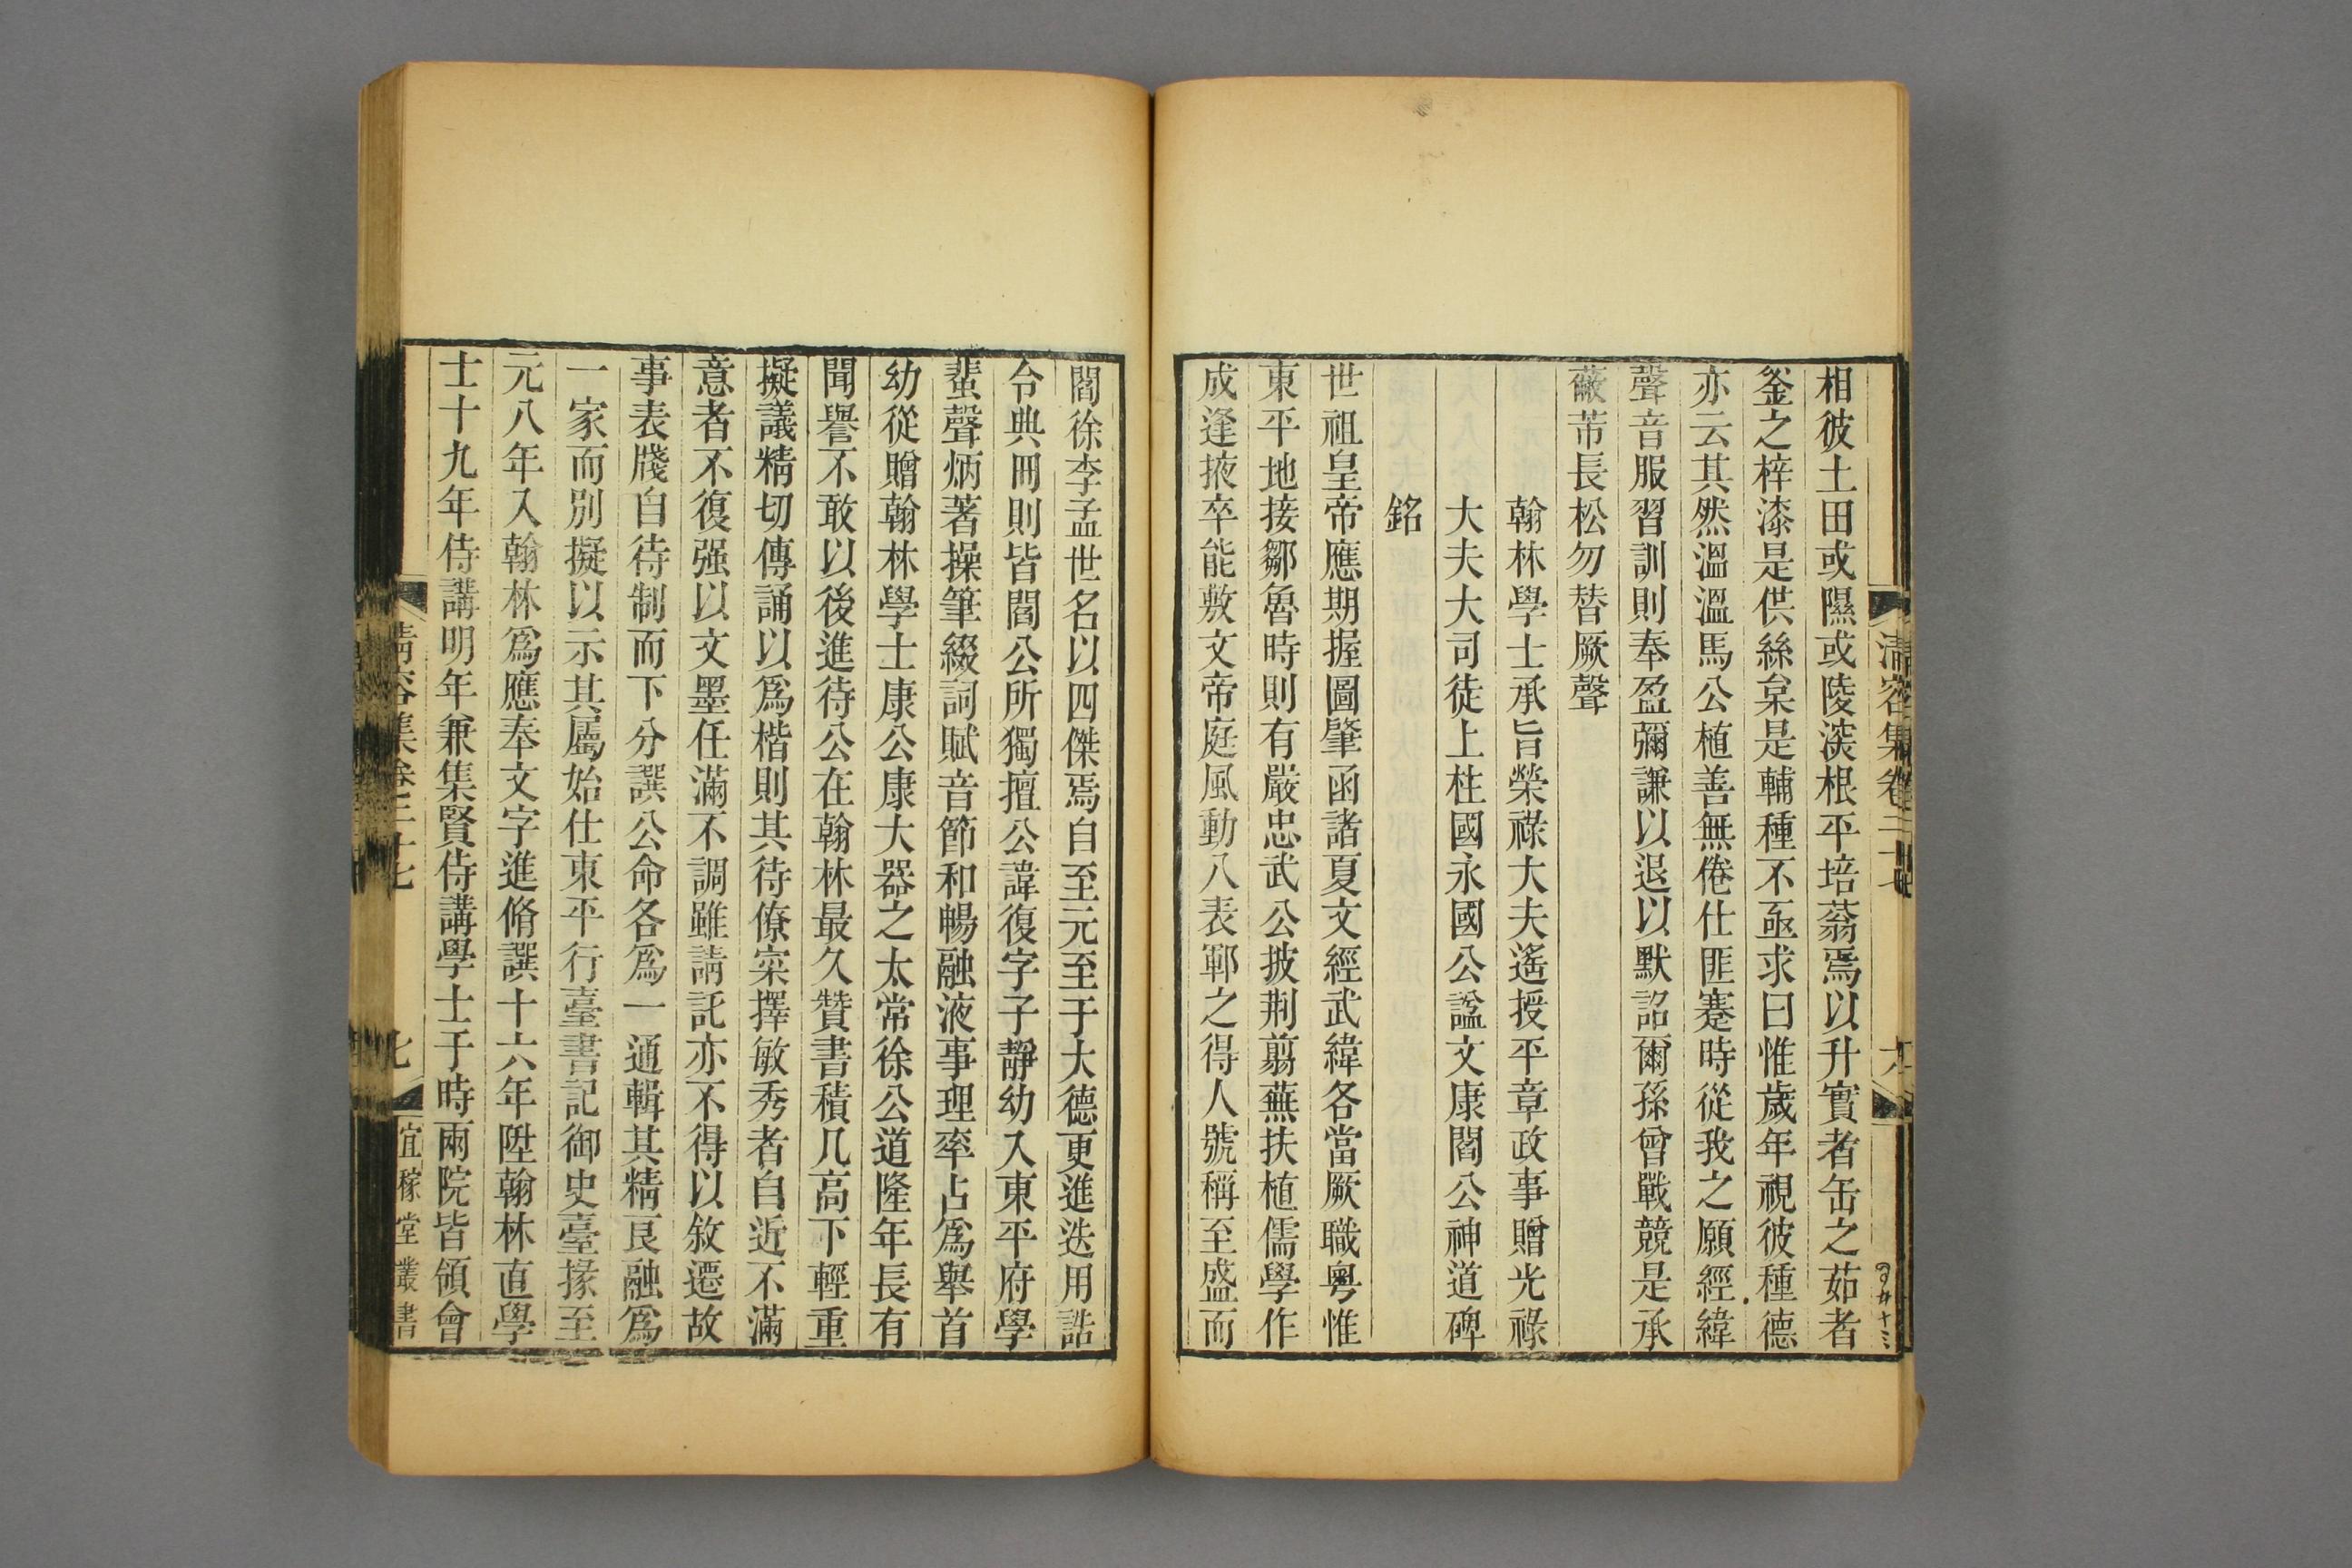 相彼土田或隰或陵深根平培蓊焉以升實者缶之茹者
釜之梓漆是供絲枲是輔種不亟求曰惟歲年視彼種德
亦云其然溫溫馬公植善無倦仕匪蹇時從我之願經緯
聲音服習訓則奉盈彌謙以退以默詔爾孫曾戰競是承
蔽芾長松勿替厥聲
翰林學士承旨榮祿大夫遙授平章政事贈光祿
大夫大司徒上柱國永國公諡文康閻公神道碑
銘
世祖皇帝應期握圖肇函諸夏文經武緯各當厥職粵惟
東平地接鄒魯時則有嚴忠武公披荆翦蕪扶植儒學作
成逢掖卒能敷文帝庭風動八表鄆之得人號稱至盛而
清容集卷二十七
六
閻徐李孟世名以四傑焉自至元至于大德更進迭用誥
令典冊則皆閻公所獨擅公諱復字子靜幼入東平府學
蜚聲炳著操筆綴詞賦音節和暢融液事理率占爲舉首
幼從贈翰林學士康公康大器之太常徐公道隆年長有
聞譽不敢以後進待公在翰林最久贊書積几高下輕重
擬議精切傳誦以爲楷則其待僚寀擇敏秀者自近不滿
意者不復强以文墨任滿不調雖請託亦不得以敘遷故
事表牋自待制而下分譔公命各爲一通輯其精良融爲
一家而別擬以示其屬始仕東平行臺書記御史臺掾至
元八年入翰林爲應奉文字進脩譔十六年陞翰林直學
士十九年侍講明年兼集賢侍講學士于時兩院皆領會
清容集卷二十七
七
宜稼堂叢書